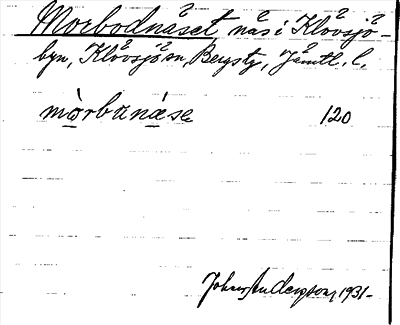 Morbodnäset, näs i Klövsjö-
byn, Klövsjö sn, Bergs tg, Jämtl. l.
mòrbɯnäse 120
Johns. Anderson, 1931-